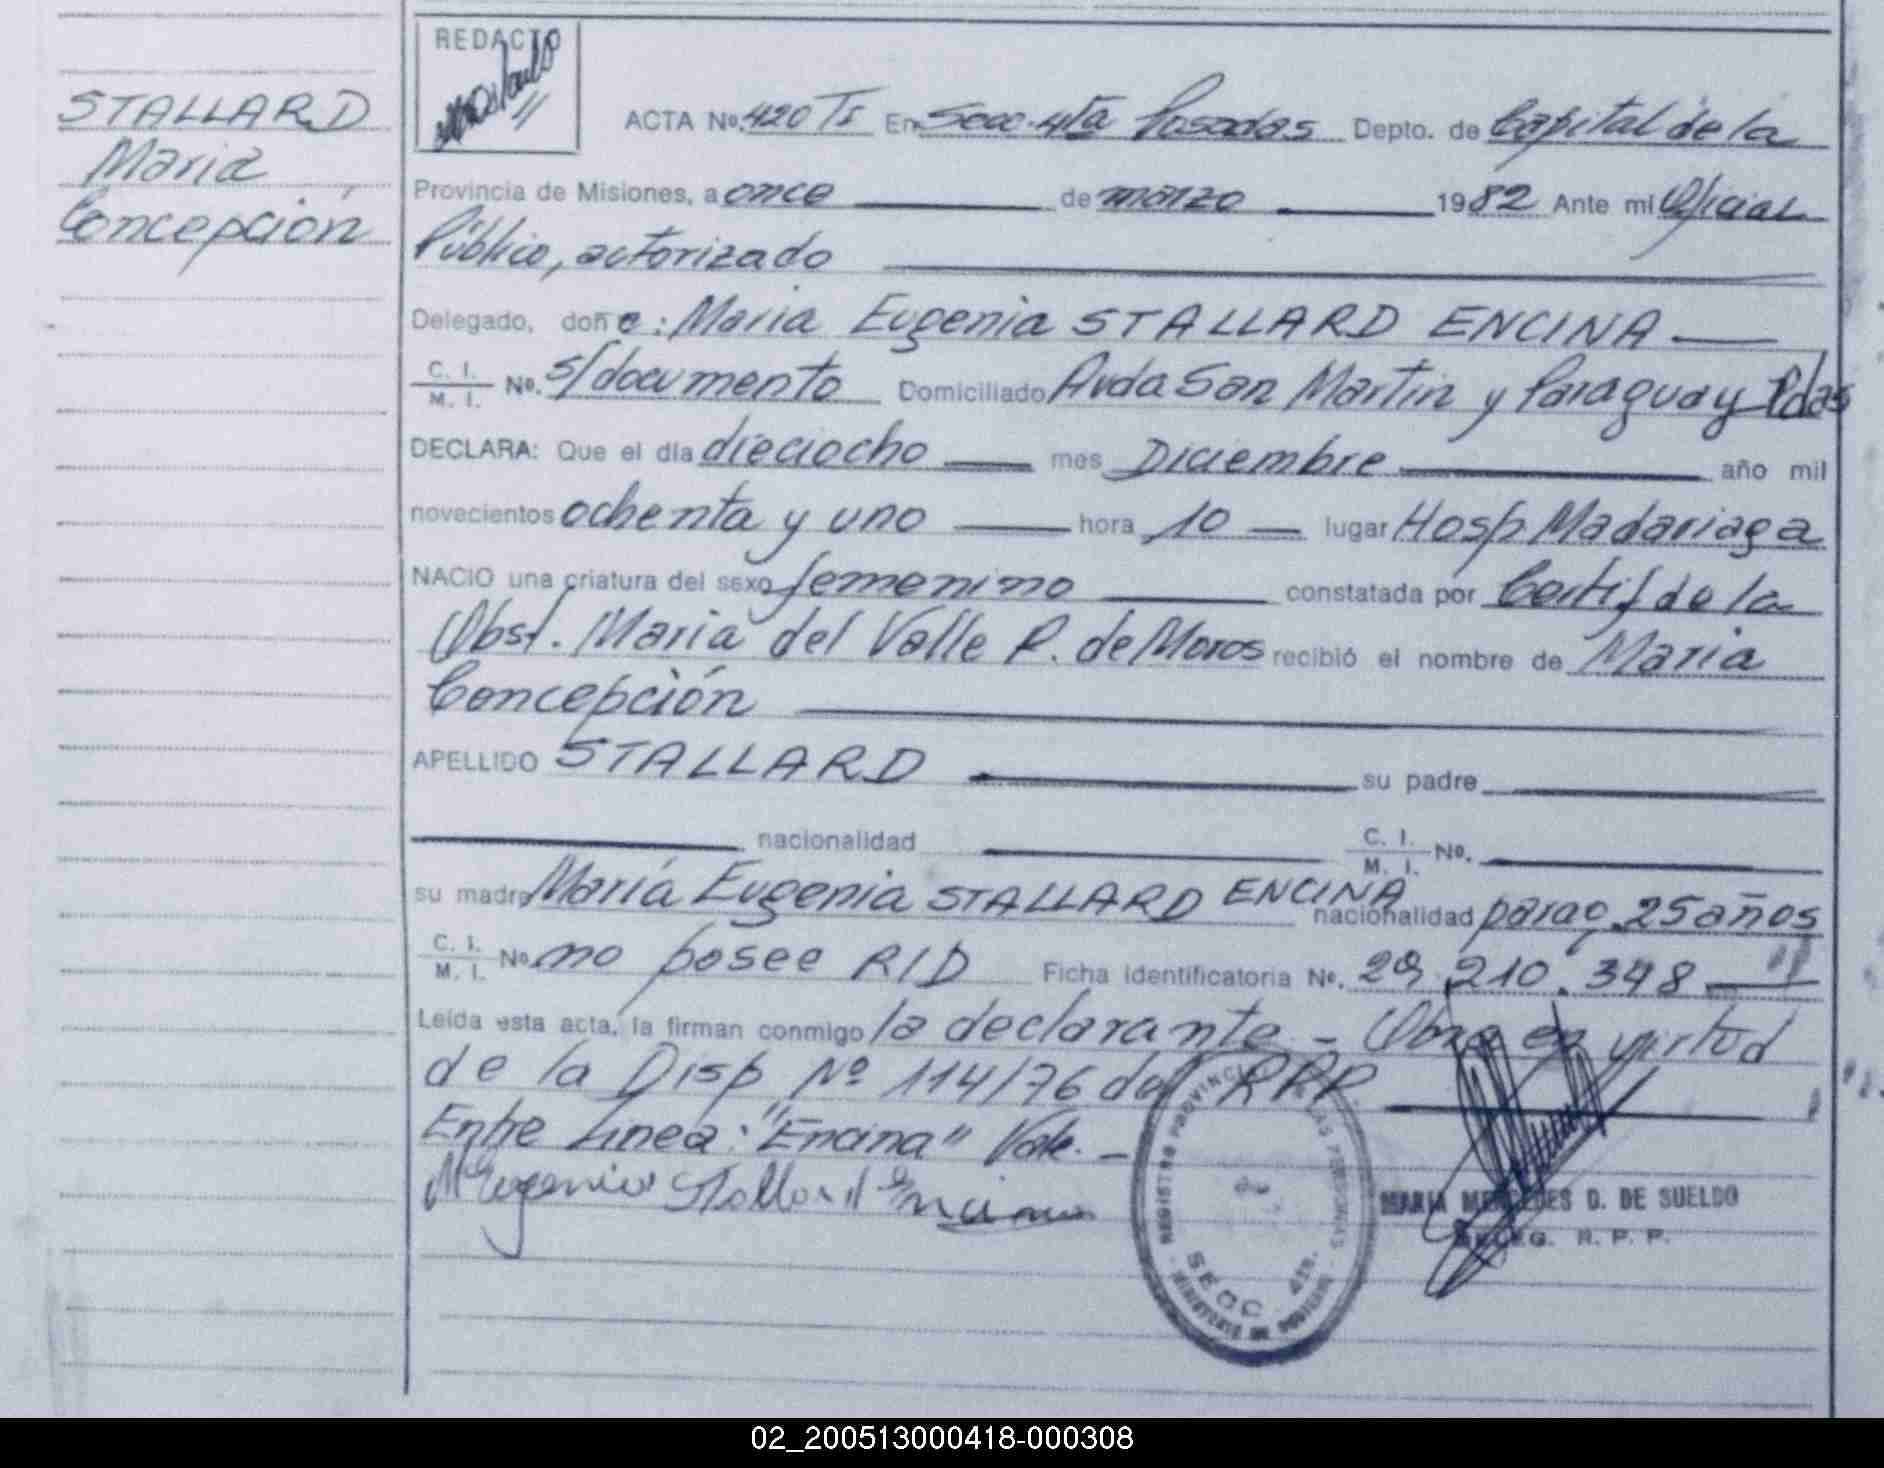 STALLARD
Maria
Concepción
REDACTO
ACTA No. 420 TI En Secc. 4ta Posadas Depto. de Capital de la
Provincia de Misiones, a once de marzo 1982 Ante mi Oficial
Público, autorizado
Delegado, doñe: Maria Eugenia STALLARD ENCINA
C. I. M. I. No. s/documento Domiciliado Avda San Martin y Paraguay Pdas
DECLARA: Que el día dieciocho mes Diciembre año mil
novecientos ochenta y uno hora 10 lugar Hosp Madariaga
NACIO una criatura del sexo femenino constatada por Certif de la
Obst. Maria del Valle P. de Moros recibió el nombre de Maria
Concepción
APELLIDO STALLARD su padre
nacionalidad C. I. M. I. No.
su madre María Eugenia STALLARD ENCINA nacionalidad parag. 25 años
C. I. M. I. No. no posee RID Ficha identificatoria No. 29.210.348
Leída esta acta, la firman conmigo la declarante - Obra en virtud
de la Disp Nº 114/76 del RPP
Entre Linea: "Encina" Vale. -
Mª Eugenia Stallard Encina
REGISTRO PROVINCIAL DE LAS PERSONAS
SECC. 4ta.
MINISTERIO DE GOBIERNO
MARIA MERCEDES D. DE SUELDO
DELEG. R. P. P.
02_200513000418-000308